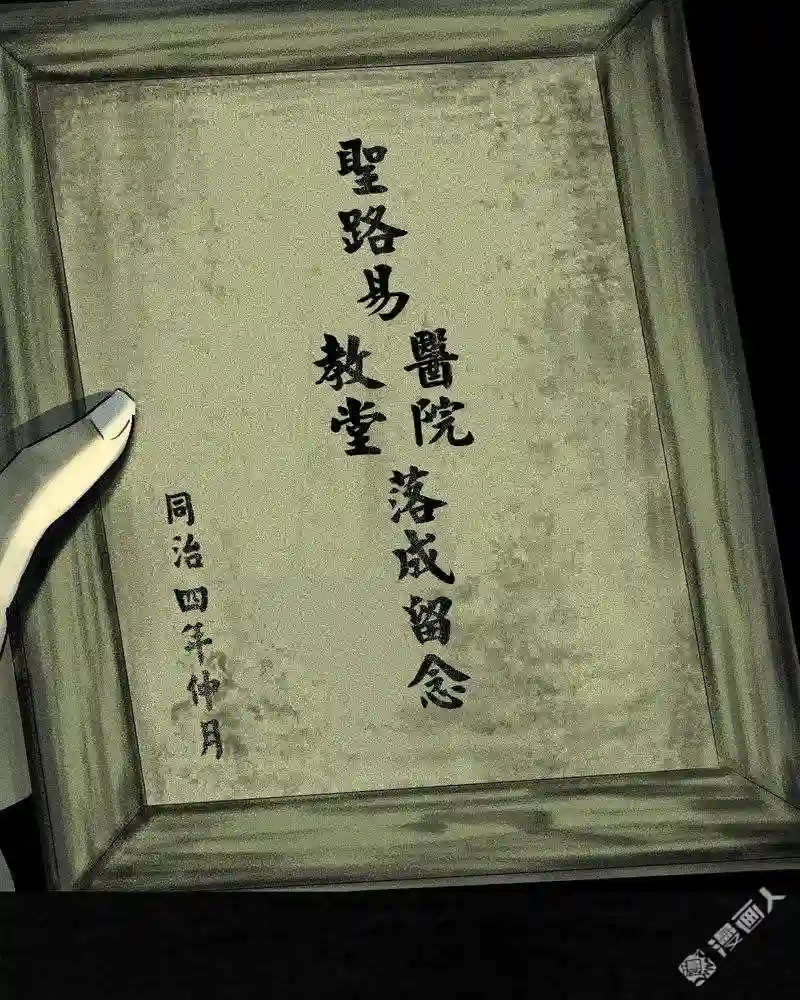 聖路易
醫院
教堂
落成留念
同治四年仲月
漫画人